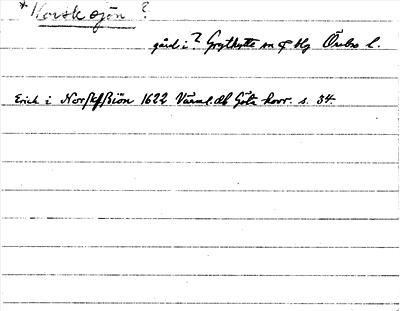 * Norsksjön ?
gård i ? Grythytte sn o Hg Örebro l.
Erick i Norskesiön 1622 Värml. Götz korr. s. 34.